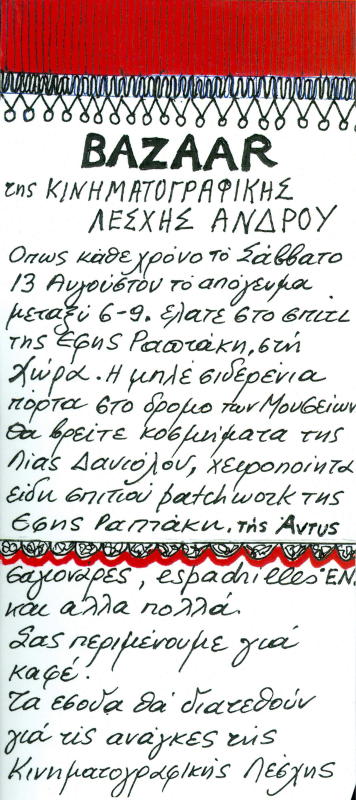 BAZAAR
της ΚΙΝΗΜΑΤΟΓΡΑΦΙΚΗΣ
ΛΕΣΧΗΣ ΑΝΔΡΟΥ
Οπως κάθε χρόνο το Σάββατο
13 Αυγούστου το απόγευμα
μεταξύ 6-9. ελατε στο σπιτι
της Εφης Ραπτάκη, στη
Χώρα. Η μπλέ σιδερένια
πόρτα στο δρομο των Μουσείων
θα βρείτε κοσμήματα της
Λιας Δανιόλου, χειροποίητα
είδη σπιτιού patchwork της
Εφης Ραπτάκη. της Αντυς
σαγιονάρες, espadrilles EN.
και αλλα πολλά.
Σας περιμένουμε γιά
καφέ.
Τα εσοδα θα διατεθούν
γιά τις ανάγκες της
Κινηματογραφικής Λέσχης